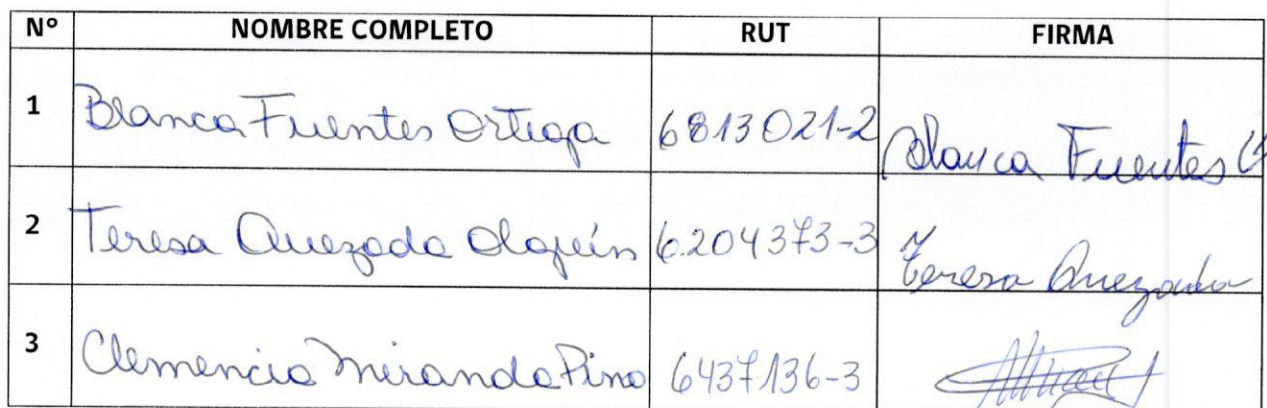 Nº NOMBRE COMPLETO RUT FIRMA
1 Blanca Fuentes Ortega 6813021-2 Blanca Fuentes
2 Teresa Quezada Olguín 6.204373-3 Teresa Quezada
3 Clemencia Miranda Pino 6437136-3